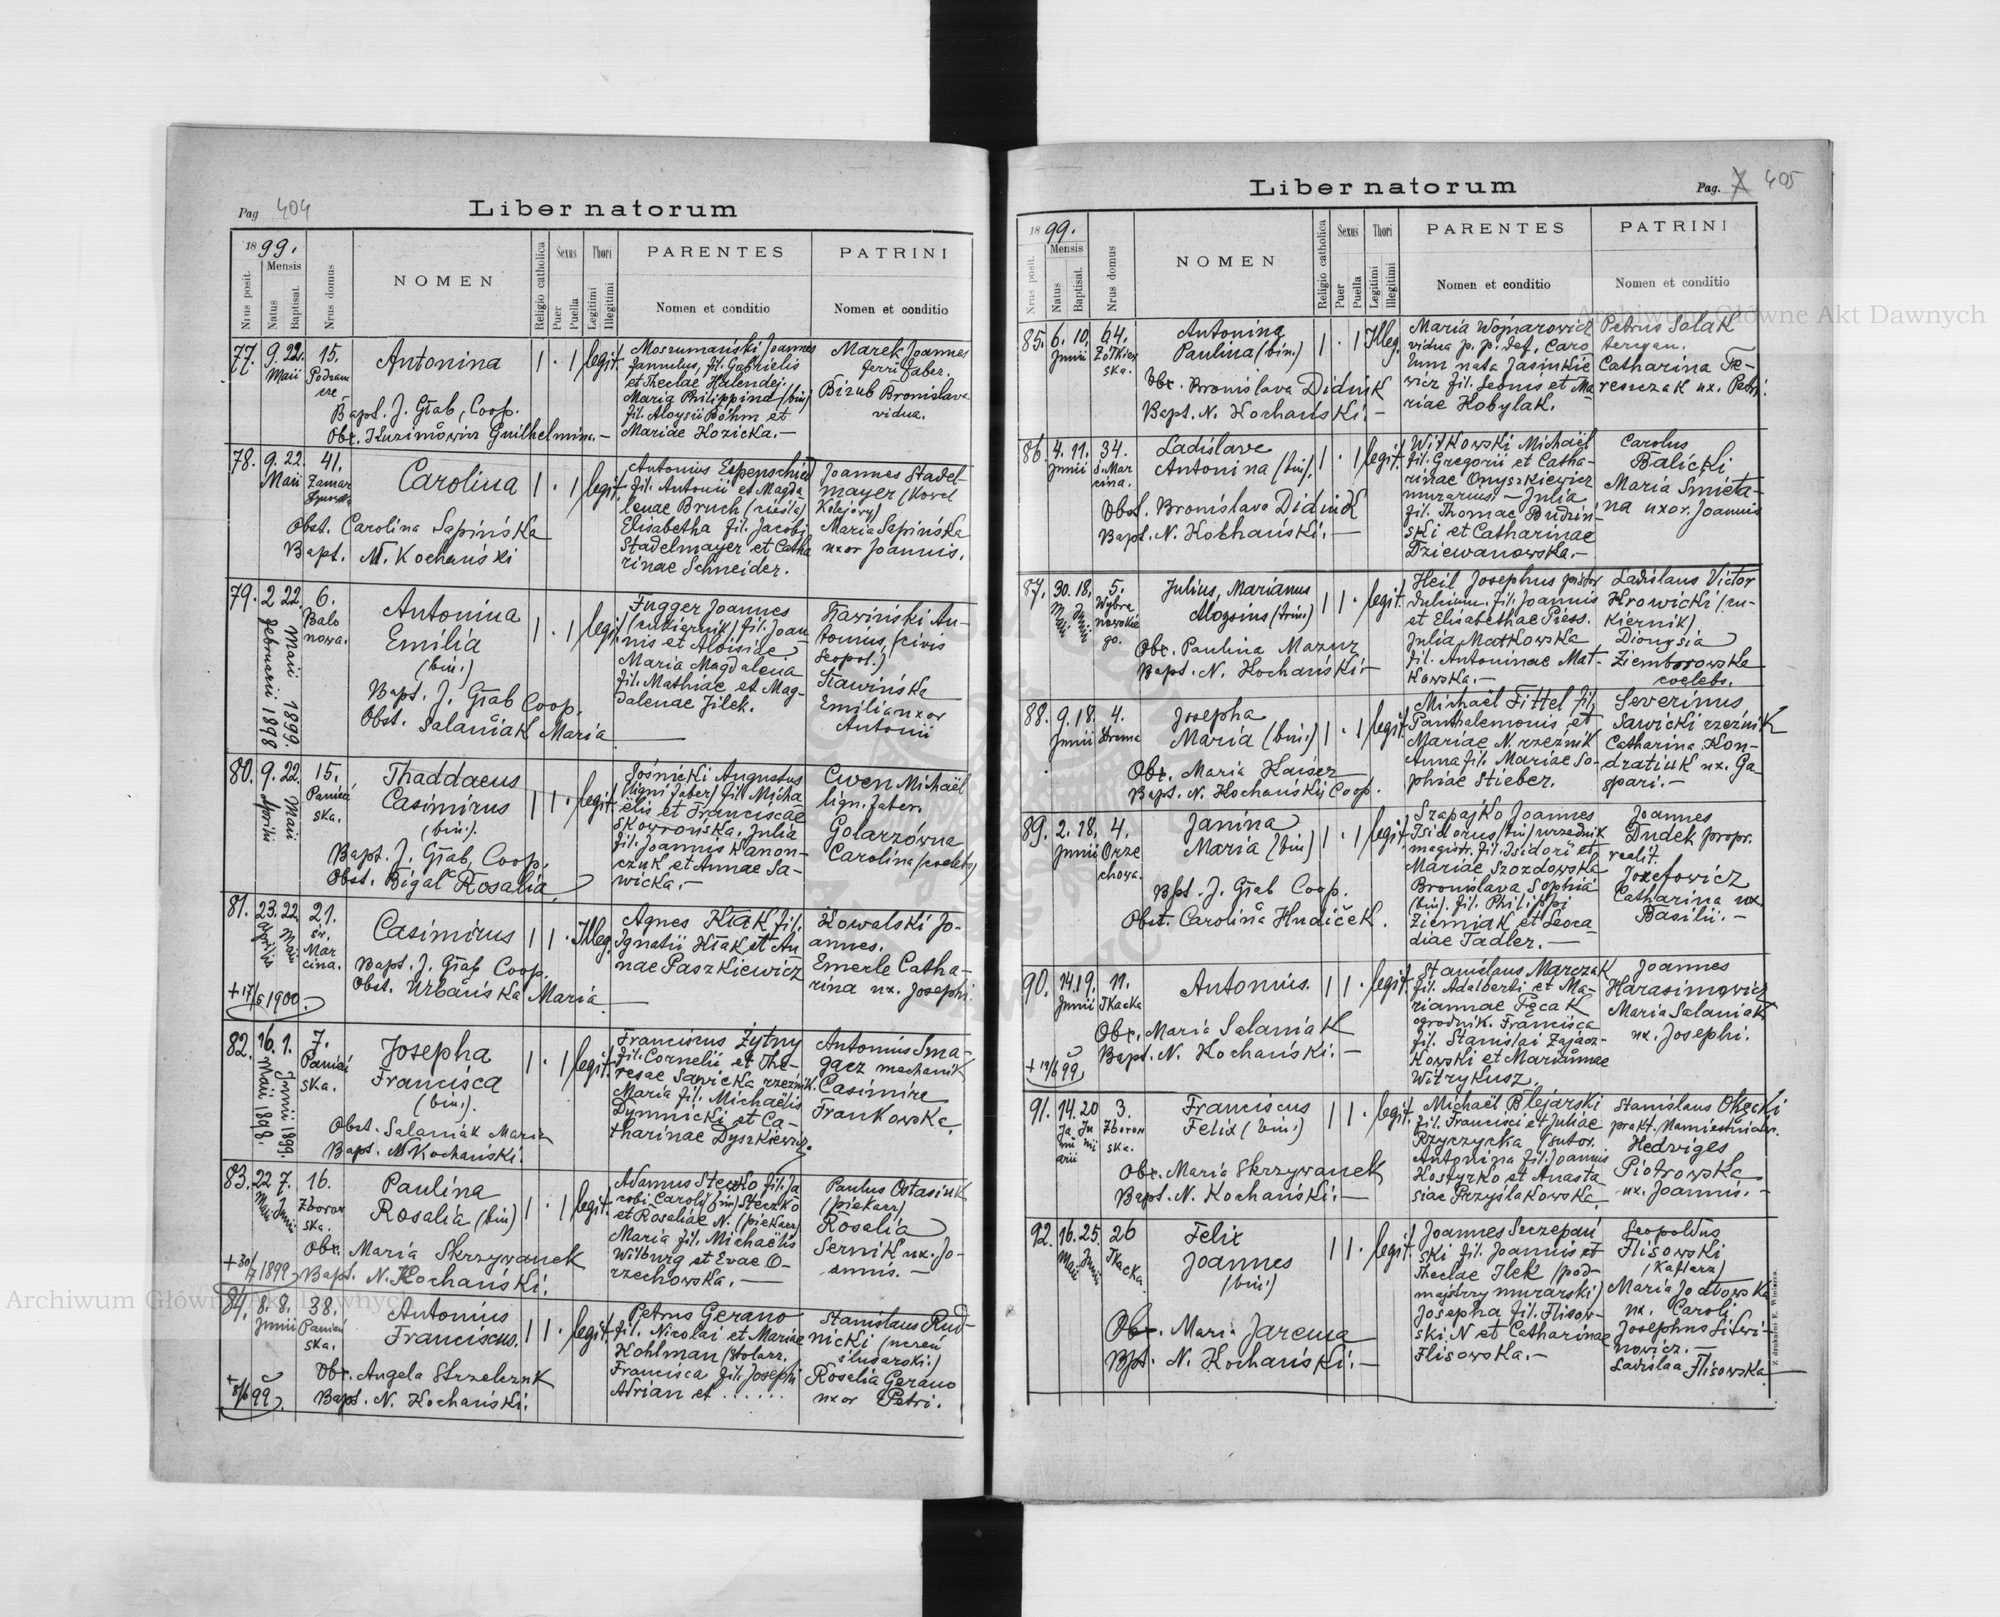 Pag 404
Liber natorum
1899.
Nrus posit.
Mensis
Natus
Baptisat.
Nrus domus
NOMEN
Religio catholica
Sexus
Puer
Puella
Thori
Legitimi
Illegitimi
PARENTES
Nomen et conditio
PATRINI
Nomen et conditio
77. 9. 22. Maii 15.
Antonina
1 . 1 legit.
Bapt. J. Grab, Coop.
Obx. Kuzimowicz Guilhelmina.-
Moszumański Joannes
famulus, fil. Gabrielis
et Theclae Halendej.
Maria Philippina (bin)
fil. Aloysii Böhm et
Mariae Kozicka.-
Marek Joannes
ferri faber.
Bizub Bronislava
vidua.
78. 9. 22. Maii 41.
Carolina
1 . 1 legit.
Obst. Carolina Sapińska
Bapt. N. Kochański
Antonius Espenschied
fil. Antonii et Magda
lenae Bruch (cieśla)
Elisabetha fil. Jacobi
Stadelmayer et Catha
rinae Schneider.
Joannes Stadel-
mayer (Kowal
Kolejowy)
Maria Sapińska
uxor Joannis.
79. 2 Februarii 1898 22. Maii 1899. 6.
Balo
nowa.
Antonina
Emilia
(bin.)
1 . 1 legit.
Bapt. J. Grab Coop.
Obst. Salaniak Maria
Fugger Joannes
(cukiernik) fil. Joan
nis et Aloisiae
Maria Magdalena
fil. Mathiae et Mag-
dalenae Jilek.
Ławiński An-
tonius (civis
Leopol.)
Ławińska
Emilia uxor
Antonii
80. 9. Aprilis 22. Maii 15.
Panień
ska.
Thaddaeus
Casimirus
(bin.).
1 1 . legit.
Bapt. J. Grab, Coop.
Obst. Bigal Rosalia
Jośnicki Augustus
(ligni faber) fil. Micha
elis et Franciscae
Skowrońska. Julia
fil. Joannis Kanon-
czuk et Annae Sa-
wicka.-
Cwen Michaël
lign. faber.
Golarzówna
Carolina (coelebs)
81. 23. Aprilis 22. Maii 21.
św.
Mar
cina.
Casimirus
1 1 . Illeg.
Bapt. J. Grab Coop.
Obst. Urbańska Maria
+ 17/5 1900.
Agnes Kłak fil.
Ignatii Kłak et An
nae Paszkiewicz
Kowalski Jo-
annes.
Emerle Catha-
rina ux. Josephi.
82. 16. Maii 1898. 1. Junii 1899. 7.
Panień
ska.
Josepha
Francisca
(bin.).
1 . 1 legit.
Obst. Salaniak Maria
Bapt. N. Kochański.
Franciscus Żytny
fil. Cornelii et The-
resae Sawicka rzeźnik.
Maria fil. Michaëlis
Dymnicki et Ca-
tharinae Dyszkiewicz.
Antonius Sma-
gacz mechanik
Casimire
Frankowska.
83. 22 Maii 7. Junii 16.
Zborow
ska.
Paulina
Rosalia (bin)
1 . 1 legit.
Obx. Maria Skrzywanek
+ 30/7 1899 Bapt. N. Kochański.
Adamus Steczko fil. Ja
cobi Caroli (bin) Steczko
et Rosaliae N. (piekarz)
Maria fil. Michaëlis
Wilburg et Evae O-
rzechowska.-
Paulus Ostasiuk
(piekarz)
Rosalia
Sernik ux. Jo-
annis.-
84. 8. 8. Junii 38.
Panień
ska.
Antonius
Franciscus.
1 1 . legit.
Obx. Angela Strzelczuk
+ 8/6 99. Bapt. N. Kochański.
Petrus Gerano
fil. Nicolai et Mariae
Kohlman (stolarz.
Francisca fil. Josephi
Adrian et ......
Stanislaus Rud-
nicki (uczeń
ślusarski.)
Rosalia Gerano
uxor Petri.
Liber natorum
Pag. 405
1899.
Nrus posit.
Mensis
Natus
Baptisat.
Nrus domus
NOMEN
Religio catholica
Sexus
Puer
Puella
Thori
Legitimi
Illegitimi
PARENTES
Nomen et conditio
PATRINI
Nomen et conditio
85. 6. 10. Junii 64.
Żółkiew
ska.
Antonina
Paulina (bin.)
1 . 1 Illeg.
Obx. Bronislava Didnik
Bapt. N. Kochański.-
Maria Wojnarowicz
vidua p. p. def. Caro
lum nata Jasinkie
wicz fil. Leonis et Ma
riae Kobylak.
Petrus Solak
Catharina Te-
renczak ux. Petri.
86. 4. 11. Junii 34.
S. Mar
cina.
Ladislava
Antonina (bin).
1 . 1 legit.
Obst. Bronislava Didnik
Bapt. N. Kochański.-
Witkowski Michaël
fil. Gregorii et Catha-
rinae Onyszkiewicz
murarius - Julia
fil. Thomae Budzin-
ski et Catharinae
Dziewanowska.-
Carolus
Balicki
Maria Smieta-
na uxor. Joannis
87. 30. Maii 18. Junii 5.
Wybra
nowskie
go.
Julius, Marianus
Aloysius (trin.)
1 1 . legit.
Obx. Paulina Mazur
Bapt. N. Kochański.-
Heil Josephus pistor
dulcium. fil. Joannis
et Elisabethae Piess.
Julia Matkowska
fil. Antoninae Mat-
kowska.-
Ladislaus Victor
Krowicki (cu-
kiernik)
Dionysia
Ziemborowska
coelebs.
88. 9. 18. Junii 4.
Josepha
Maria (bin.)
1 . 1 legit.
Obx. Maria Kaiser
Bapt. N. Kochański Coop.
Michaël Fittel fil.
Panthalemonis et
Mariae N. rzeźnik
Anna fil. Mariae So-
phiae Stieber.
Severinus
Sawicki rzeźnik
Catharina Kon-
dratiuk ux. Ga
spari.-
89. 2. 18. Junii 4.
Orze
chowa.
Janina
Maria (bin)
1 . 1 legit.
Bpt. J. Grab Coop.
Obst. Carolina Hudiček.
Szapajko Joannes
Isidorus (bin) urzednik
magistr. fil. Isidori et
Mariae Szozdowska
Bronislava Sophia
(bin). fil. Philippi
Ziemiak et Leoca-
diae Tadler.-
Joannes
Dudek propr.
realit.
Jozefowicz
Catharina ux.
Basilii.-
90. 14. 19. Junii 11.
Tkacka
Antonius.
1 1 . legit.
Obx. Maria Salaniak
Bapt. N. Kochański.-
+ 19/6 99
Stanislaus Marczak
fil. Adalberti et Ma-
riannae Fęcak
ogrodnik. Francisca
fil. Stanislai Zającz-
kowski et Mariannae
Witrykusz.
Joannes
Harasimowicz
Maria Salaniak
ux. Josephi.
91. 14. Januarii 20 Junii 3.
Zborow
ska.
Franciscus
Felix (bin.)
1 1 . legit.
Obx. Maria Skrzywanek
Bapt. N. Kochański.-
Michaël Blejarski
fil. Francisci et Juliae
Rzyczycka (sutor.
Antonina fil. Joannis
Kostyrko et Anasta-
siae Przyślakowska
Stanislaus Okęcki
prakt. Namiestnictw.
Hedviges
Piotrowska
ux. Joannis.-
92. 16. Maii 25. Junii 26
Tkacka.
Felix
Joannes
(bin.)
1 1 . legit.
Obx. Maria Jarema
Bpt. N. Kochański.-
Joannes Szczepań
ski fil. Joannis et
Theclae Ilek (pod-
majstrzy murarski)
Josepha fil. Flisow-
ski N et Catharinae
Flisowska.-
Leopoldus
Flisowski
(Kaflarz)
Maria Jodłowska
ux. Caroli
Josephus Litwi-
nowicz.-
Ladislaa Flisowska
Z drukarni E. Winiarza.
Archiwum Główne Akt Dawnych
Archiwum Główne Akt Dawnych